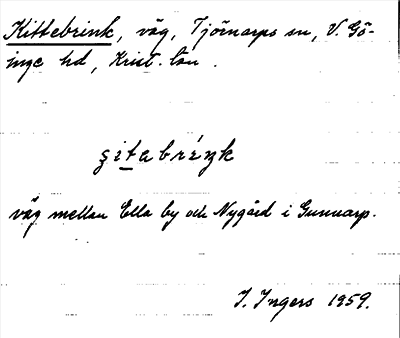 Kittebrink, väg, Tjörnarps sn, V. Gö-
inge hd, Krist. län.
ʒitabréŋk
väg mellan Ella by och Nygård i Gunnarp.
I. Ingers 1959.